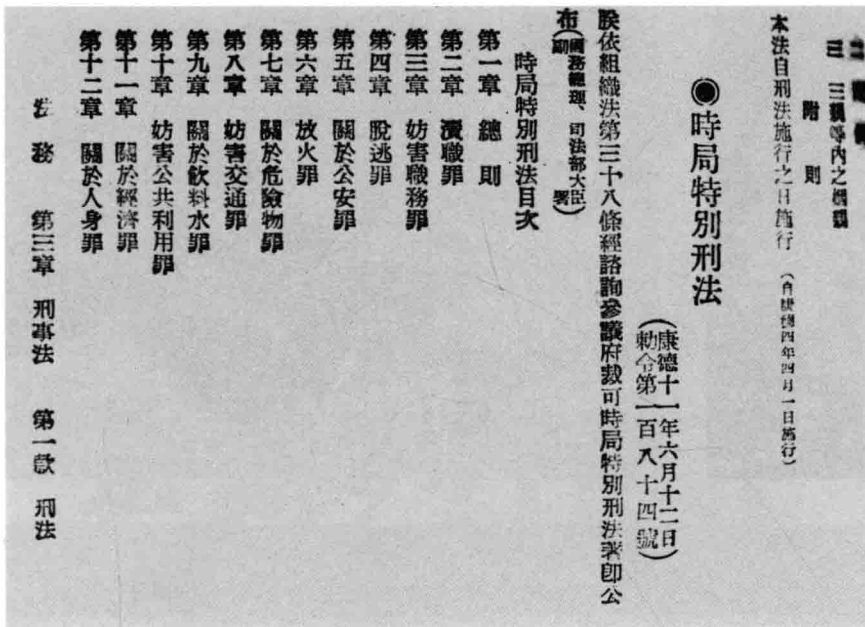 三　三親等內之姻親
附　則
本法自刑法施行之日施行（自康德四年四月一日施行）
●時局特別刑法
（康德十一年六月十二日
勅令第一百八十四號）
朕依組織法第三十八條經諮詢參議府裁可時局特別刑法著卽公
布（國務總理、司法部大臣
副署）
時局特別刑法目次
第一章　總　則
第二章　瀆職罪
第三章　妨害職務罪
第四章　脫逃罪
第五章　關於公安罪
第六章　放火罪
第七章　關於危險物罪
第八章　妨害交通罪
第九章　關於飲料水罪
第十章　妨害公共利用罪
第十一章　關於經濟罪
第十二章　關於人身罪
法　務　第三章　刑事法　第一款　刑法